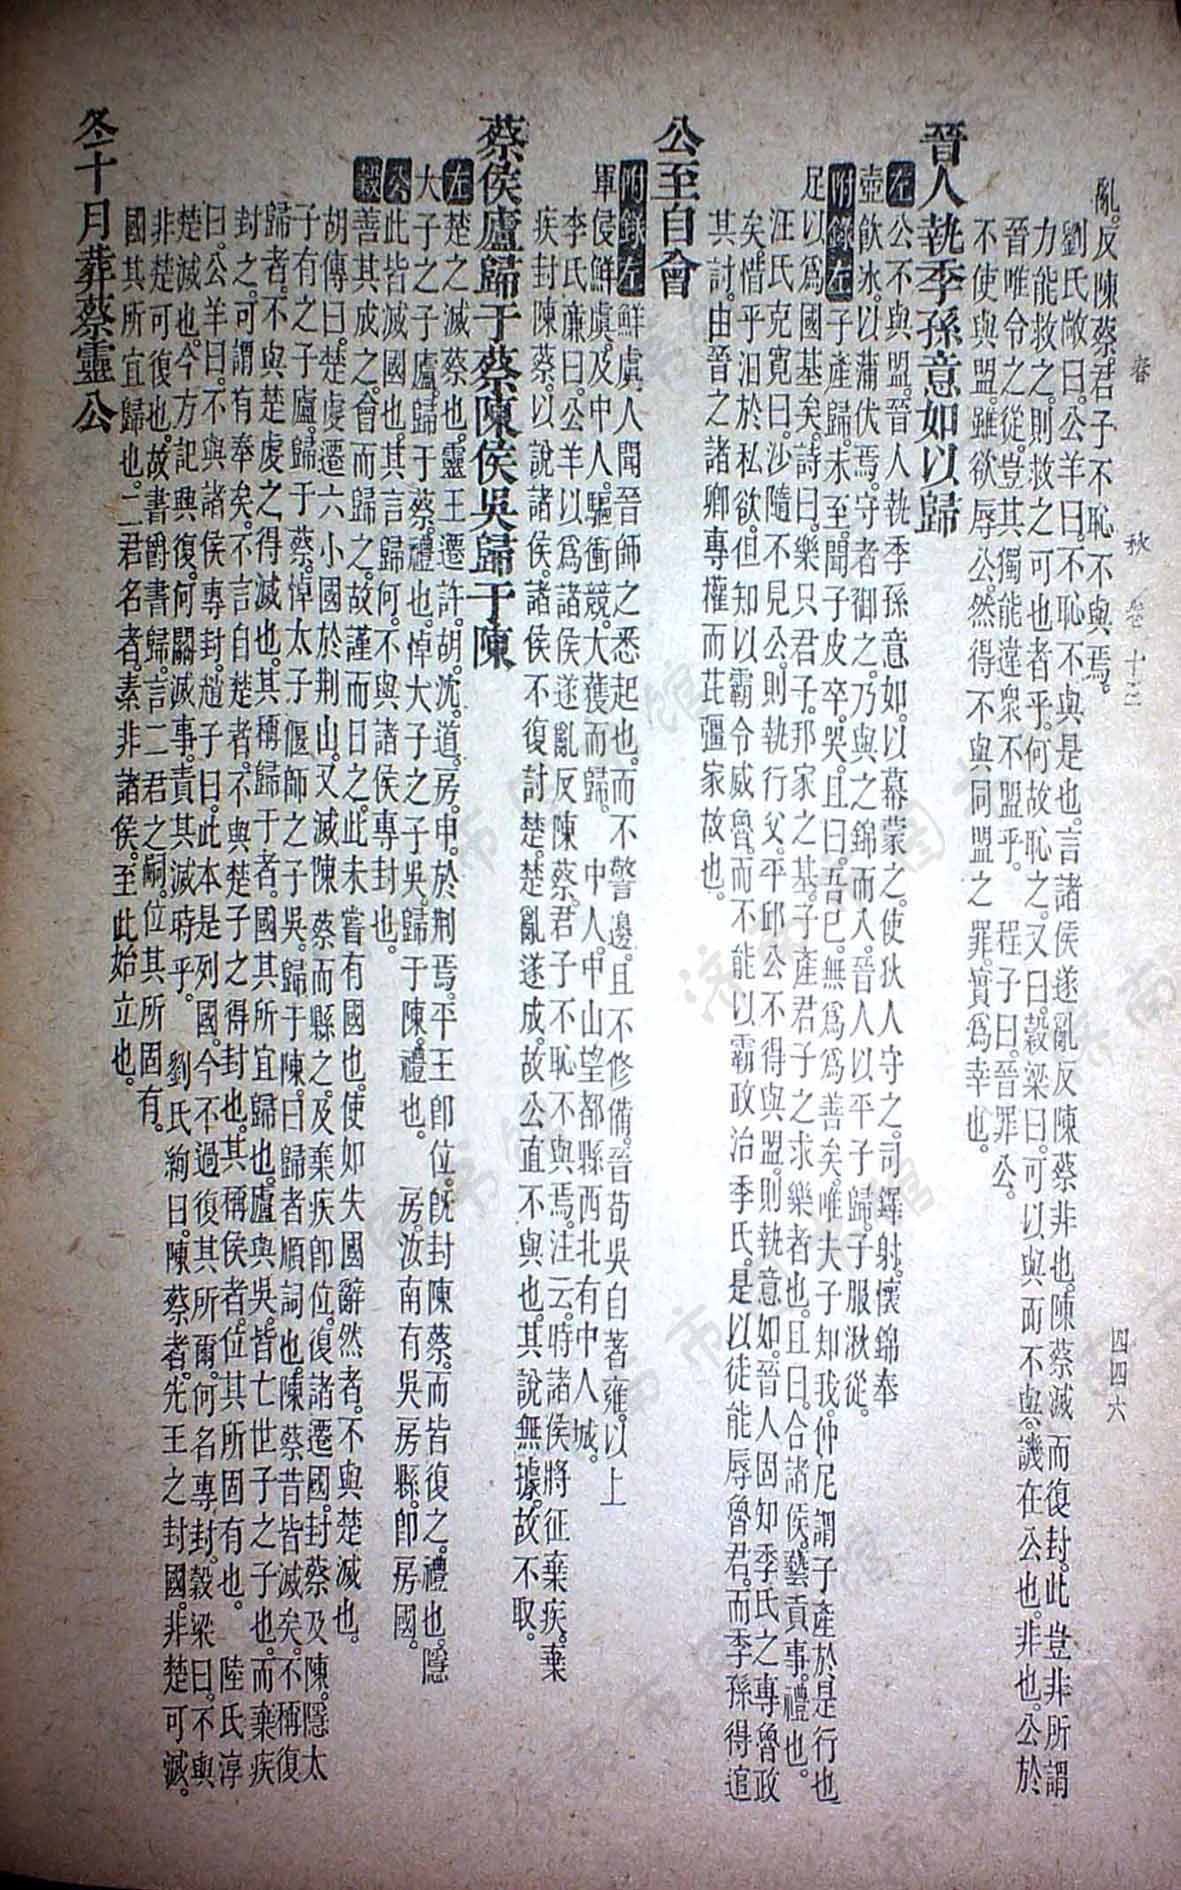 春秋 卷十三 四四六
亂。反陳蔡。君子不恥不與焉。
劉氏敞曰。公羊曰。不恥不與是也。言諸侯遂亂反陳蔡非也。陳蔡滅而復封。此豈非所謂
力能救之。則救之可也者乎。何故恥之。又曰。穀梁曰。可以與而不與。譏在公也。非也。公於
晉唯令之從。豈其獨能違衆不盟乎。 程子曰。晉罪公。
不使與盟。雖欲辱公。然得不與同盟之罪。實爲幸也。
晉人執季孫意如以歸
左公不與盟。晉人執季孫意如。以幕蒙之。使狄人守之。司鐸射。懷錦奉
壺飲冰。以蒲伏焉。守者御之。乃與之錦而入。晉人以平子歸。子服湫從。
附錄左子產歸。未至。聞子皮卒。哭。且曰。吾已。無爲爲善矣。唯夫子知我。仲尼謂子產於是行也
足以爲國基矣。詩曰。樂只君子。邦家之基。子產君子之求樂者也。且曰。合諸侯。藝貢事。禮也。
汪氏克寬曰。沙隨不見公。則執行父。平邱公不得與盟。則執意如。晉人固知季氏之專魯政
矣。惜乎汨於私欲。但知以霸令威魯。而不能以霸政治季氏。是以徒能辱魯君。而季孫得逭
其討。由晉之諸卿專權而芘彊家故也。
公至自會
附錄左鮮虞人聞晉師之悉起也。而不警邊。且不修備。晉荀吳自著雍。以上
軍侵鮮虞。及中人。驅衝競。大獲而歸。 中人。中山望都縣西北有中人城。
李氏廉曰。公羊以爲諸侯遂亂反陳蔡。君子不恥不與焉。注云。時諸侯將征棄疾。棄
疾封陳蔡。以說諸侯。諸侯不復討楚。楚亂遂成。故公直不與也。其說無據。故不取。
蔡侯廬歸于蔡陳侯吳歸于陳
左楚之滅蔡也。靈王遷許。胡。沈。道。房。申。於荆焉。平王卽位。旣封陳蔡。而皆復之。禮也。隱
大子之子廬。歸于蔡。禮也。悼大子之子吳。歸于陳。禮也。 房。汝南有吳房縣。卽房國。
公此皆滅國也。其言歸何。不與諸侯專封也。
穀善其成之會而歸之。故謹而日之。此未嘗有國也。使如失國辭然者。不與楚滅也。
胡傳曰。楚虔遷六小國於荆山。又滅陳蔡而縣之。及棄疾卽位。復諸遷國。封蔡及陳。隱太
子有之子廬。歸于蔡。悼太子偃師之子吳。歸于陳。曰歸者順詞也。陳蔡昔皆滅矣。不稱復
歸者。不與楚虔之得滅也。其稱歸于者。國其所宜歸也。廬與吳。皆亡世子之子也。而棄疾
封之。可謂有奉矣。不言自楚者。不與楚子之得封也。其稱侯者。位其所固有也。 陸氏淳
曰。公羊曰。不與諸侯專封。趙子曰。此本是列國。今不過復其所爾。何名專封。穀梁曰。不與
楚滅也。今方記興復。何關滅事。責其滅時乎。 劉氏絢曰。陳蔡者。先王之封國。非楚可滅。
非楚可復也。故書爵書歸。言二君之嗣。位其所固有。
國其所宜歸也。二君名者。素非諸侯。至此始立也。
冬十月葬蔡靈公